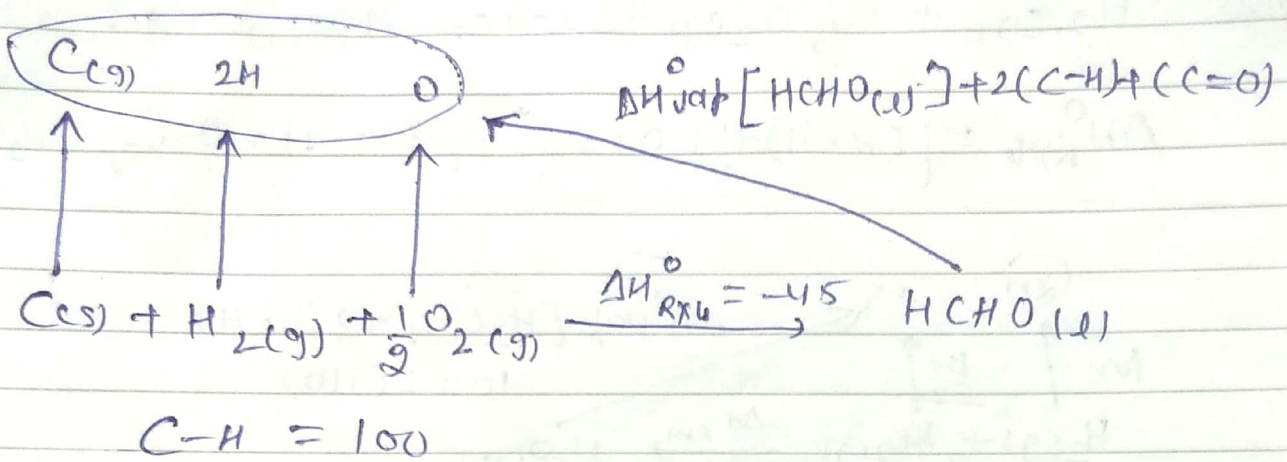 C(g) 2H O
ΔH°vap [HCHO(l)] + 2(C-H) + (C=O)
C(s) + H2(g) + 1/2 O2(g) ΔH°RXN = -45 HCHO(l)
C-H = 100